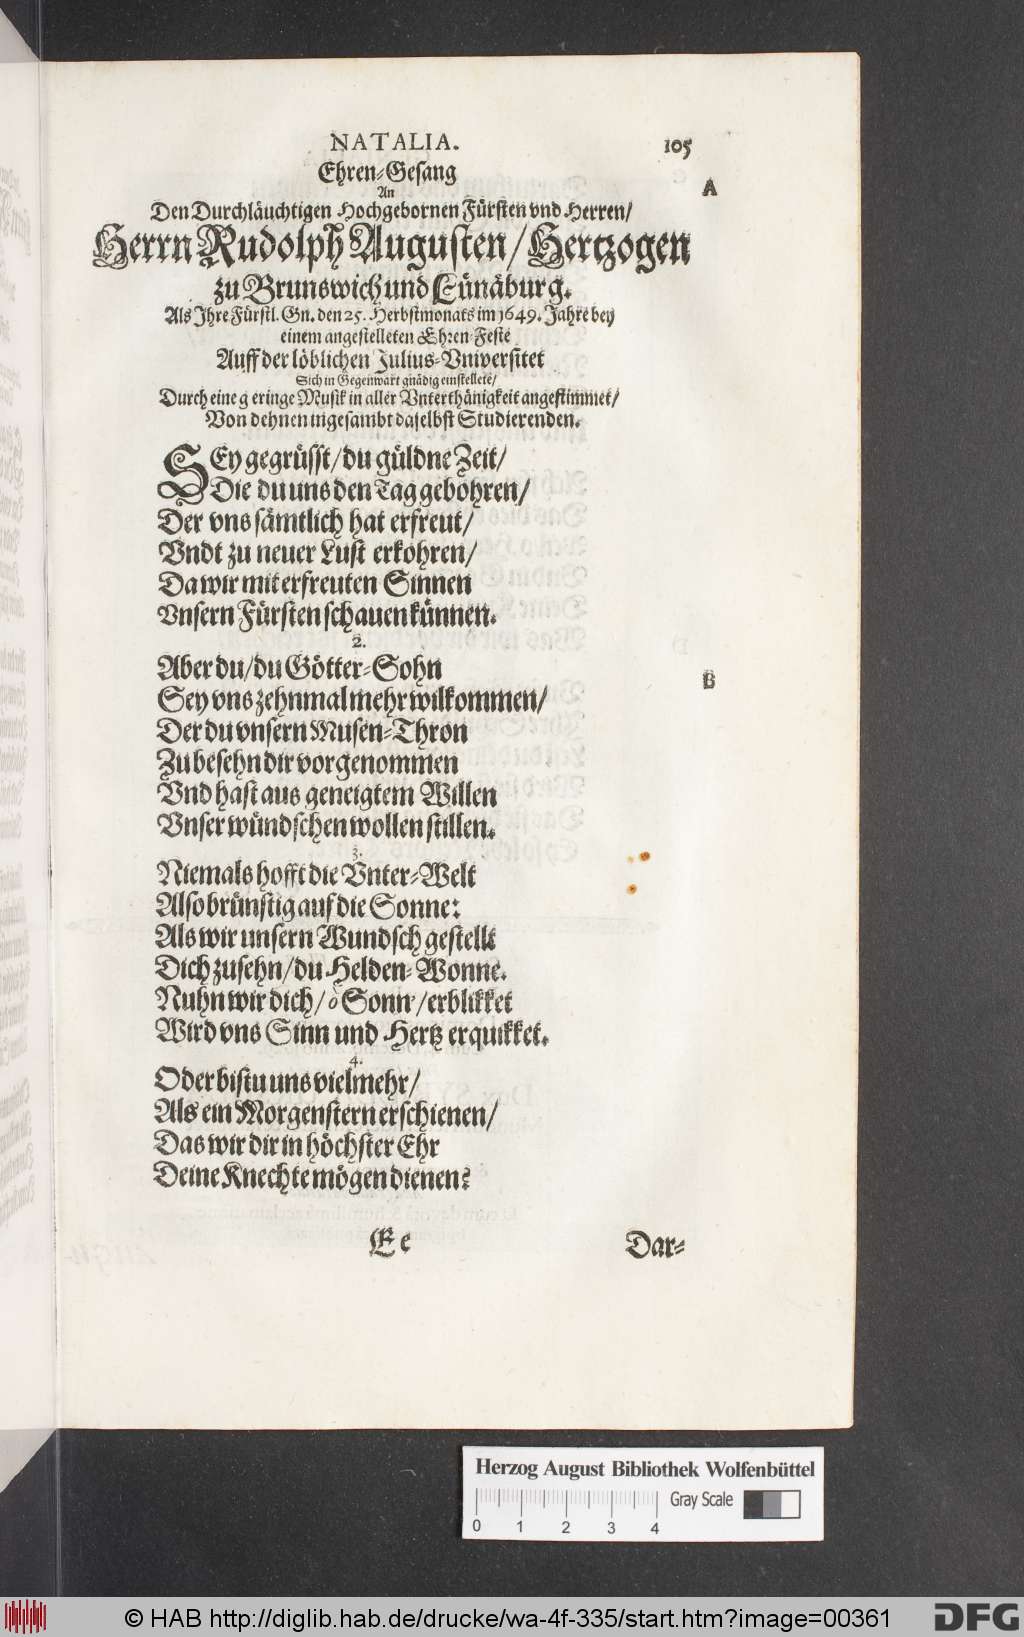 NATALIA. 105
Ehren-Gesang
An
A
Den Durchläuchtigen Hochgebornen Fürsten vnd Herren/
Herrn Rudolph Augusten/Hertzogen
zu Brunswich und Lünäburg.
Als Ihre Fürstl. Gn. den 25. Herbstmonats im 1649. Jahre bey
einem angestelleten Ehren-Feste
Auff der löblichen Julius-Vniversitet
Sich in Gegenwart gnädig einstellete/
Durch eine geringe Musik in aller Vnterthänigkeit angestimmet/
Von dehnen ingesambt daselbst Studierenden.
SEy gegrüsst/du güldne Zeit/
Die du uns den Tag gebohren/
Der vns sämtlich hat erfreut/
Vndt zu neuer Lust erkohren/
Da wir mit erfreuten Sinnen
Vnsern Fürsten schauen künnen.
2.
Aber du/du Götter-Sohn
Sey vns zehnmal mehr wilkommen/
B
Der du vnsern Musen-Thron
Zu besehn dir vorgenommen
Vnd hast aus geneigtem Willen
Vnser wündschen wollen stillen.
3.
Niemals hofft die Vnter-Welt
Also brünstig auf die Sonne:
Als wir unsern Wundsch gestellt
Dich zusehn/du Helden-Wonne.
Nuhn wir dich/ô Sonn'/erblikket
Wird vns Sinn und Hertz erquikket.
4.
Oder bistu uns vielmehr/
Als ein Morgenstern erschienen/
Das wir dir in höchster Ehr
Deine Knechte mögen dienen?
Ee Dar-
Herzog August Bibliothek Wolfenbüttel
Gray Scale
0 1 2 3 4
© HAB http://diglib.hab.de/drucke/wa-4f-335/start.htm?image=00361
DFG